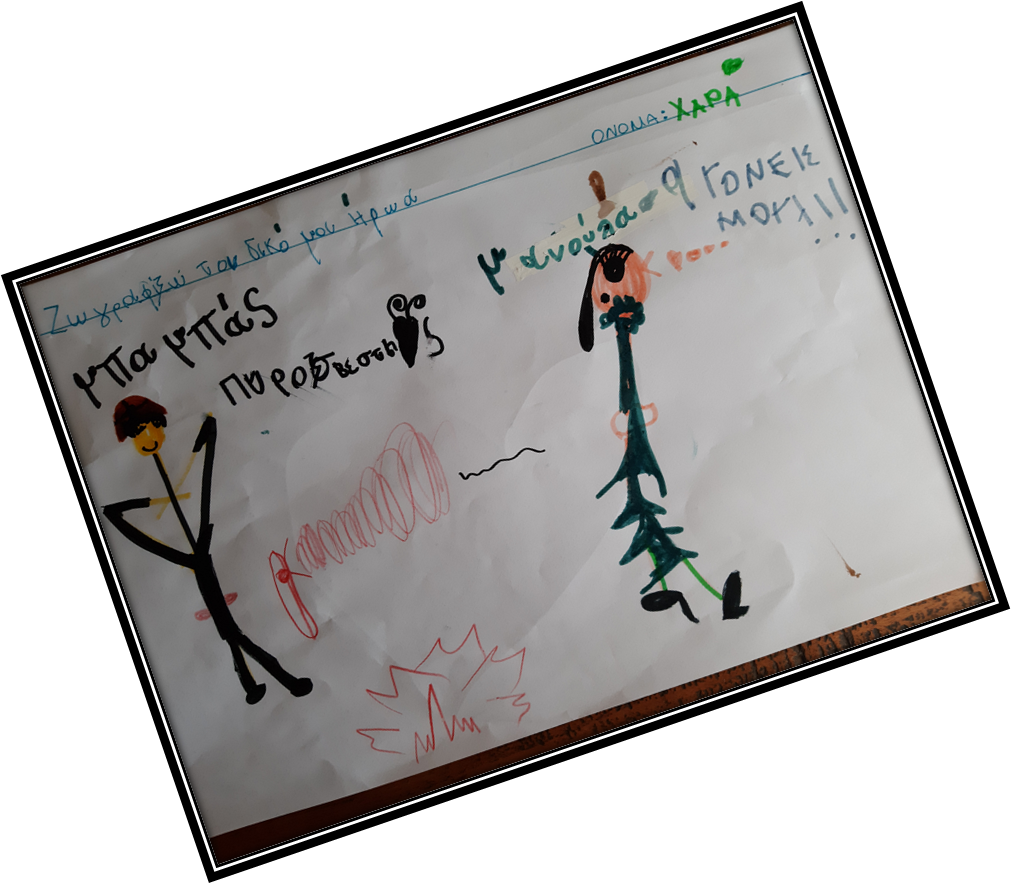 ΟΝΟΜΑ: ΧΑΡΑ
Ζωγραφίζω τον δικό μου ήρωα
μπαμπάς
πυροσβέστης
μανούλα
ΓΟΝΕΙΣ
ΜΟΥ!!!
...